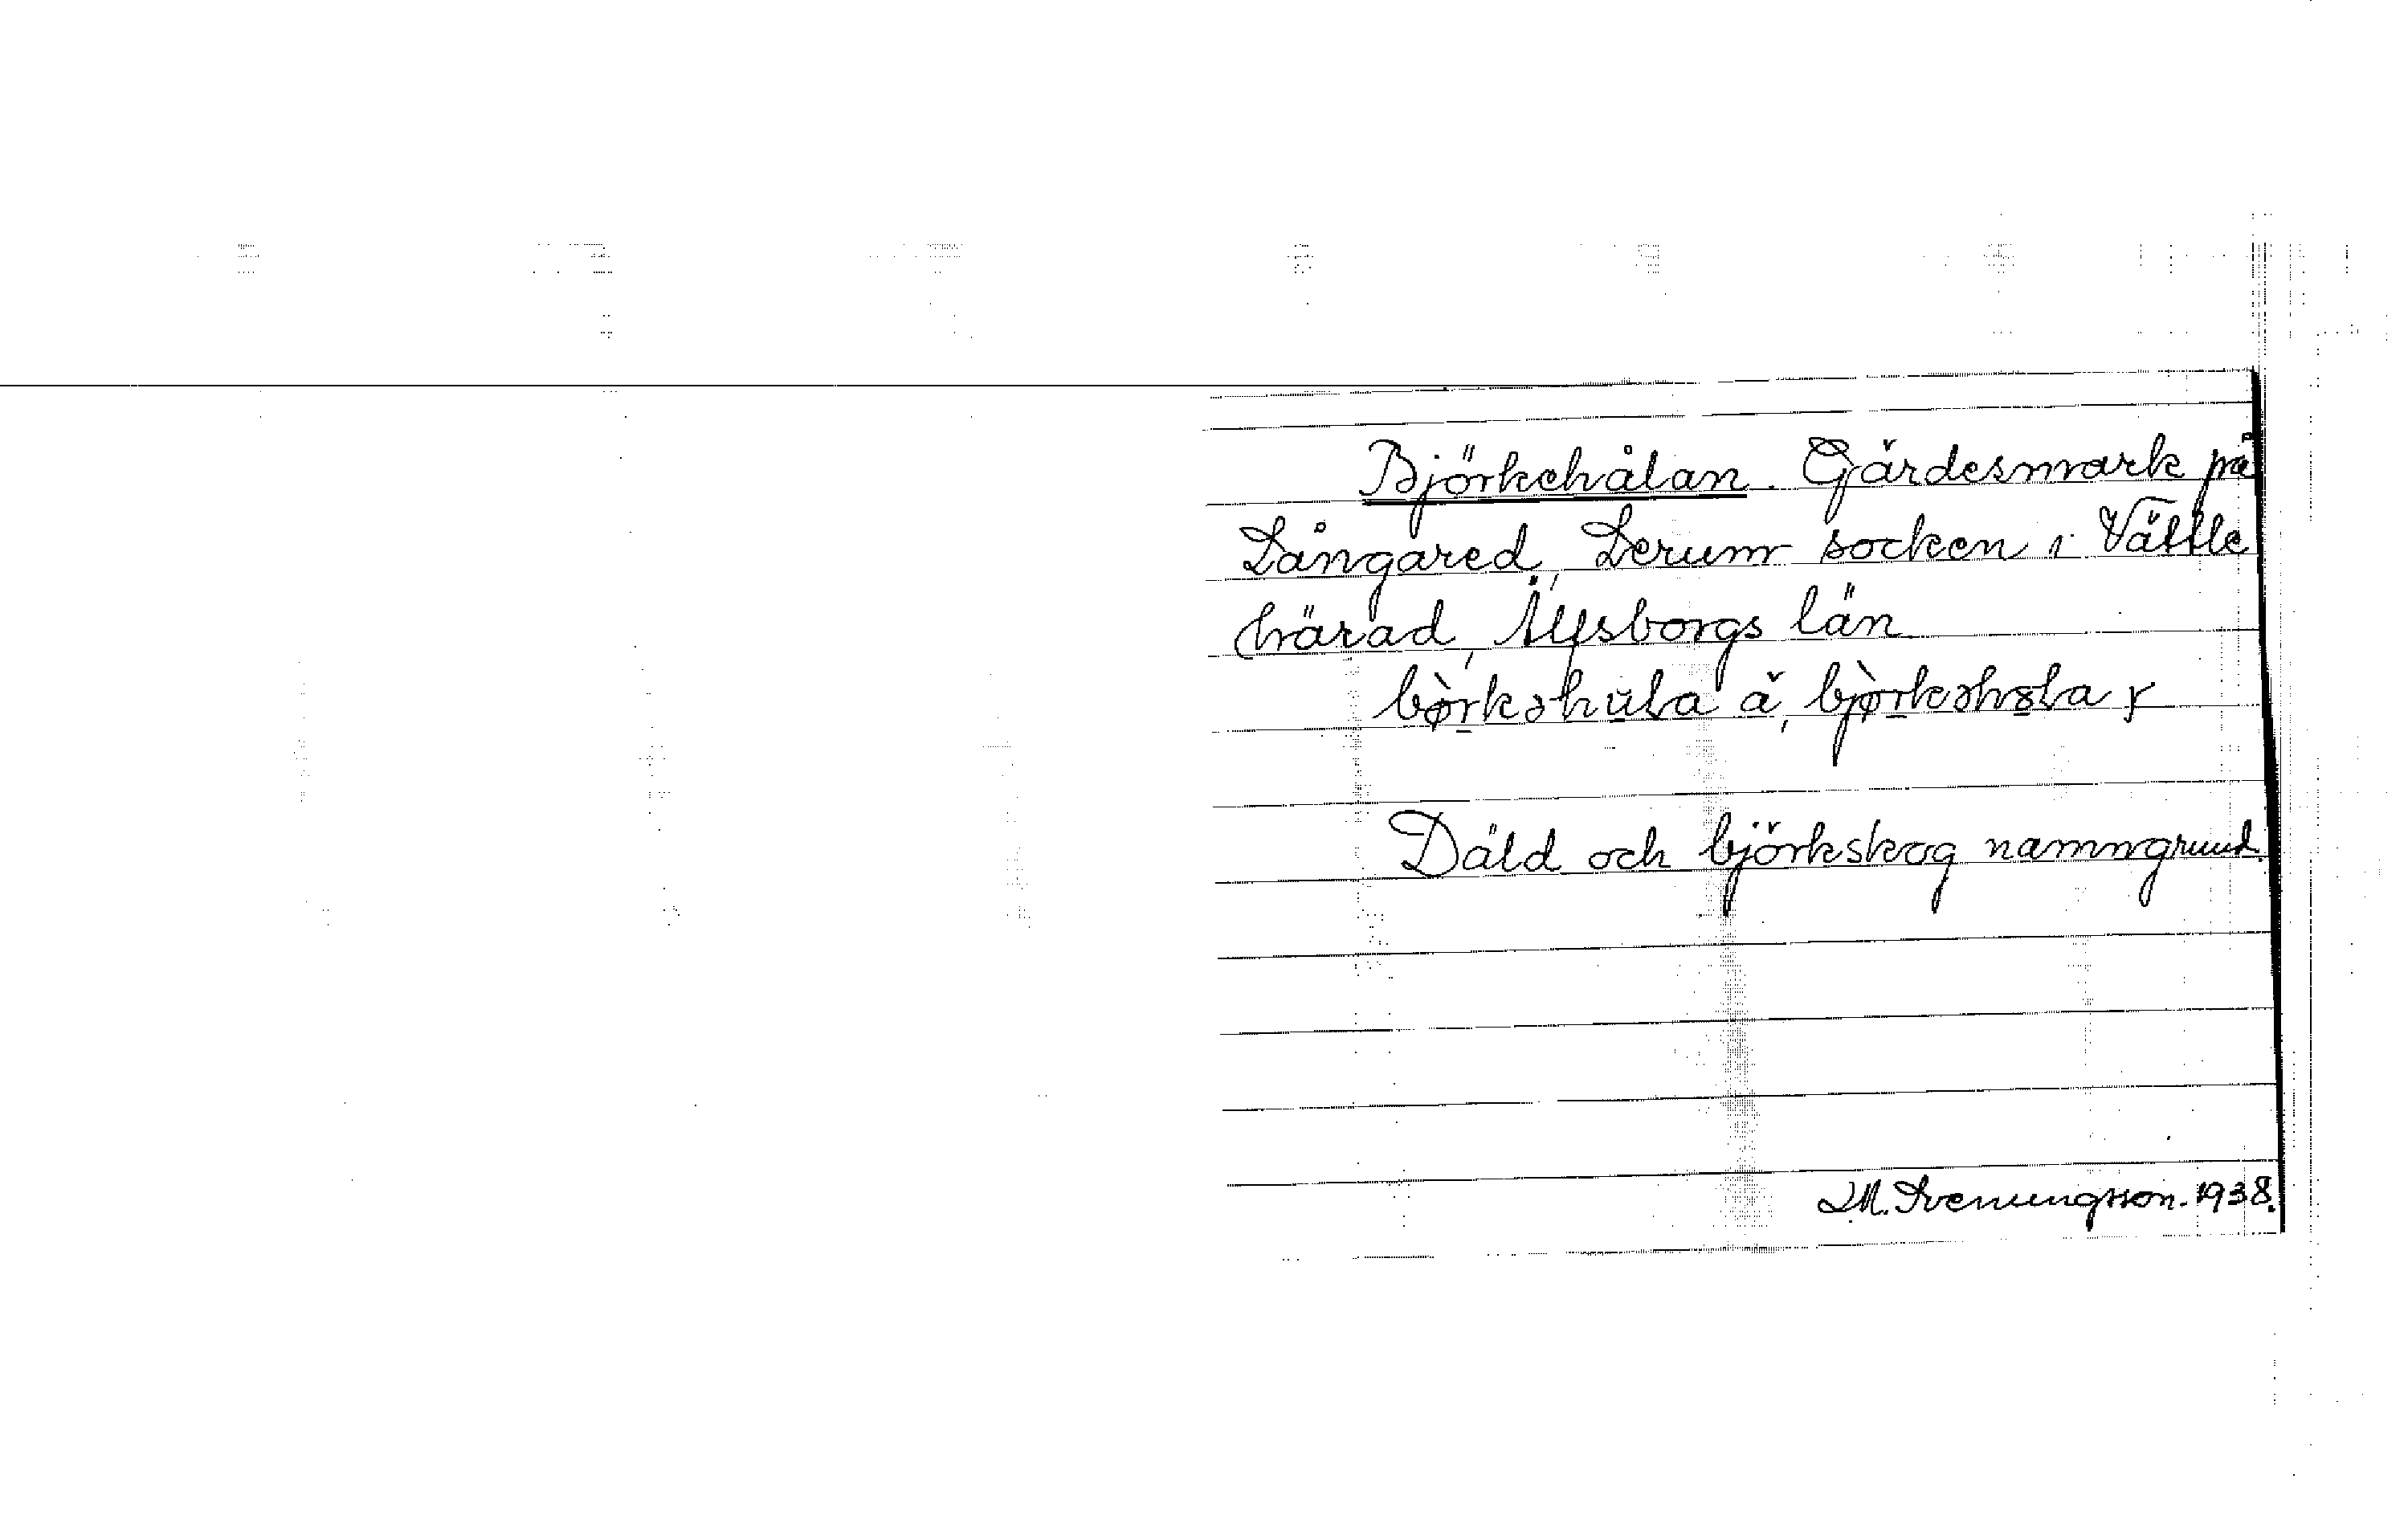 Björkehålan. Gärdesmark på
Långared, Lerum socken i Vättle
härad, Älfsborgs län
Däld och björkskog namngrund.
J.M. Svenungsson. 1938.